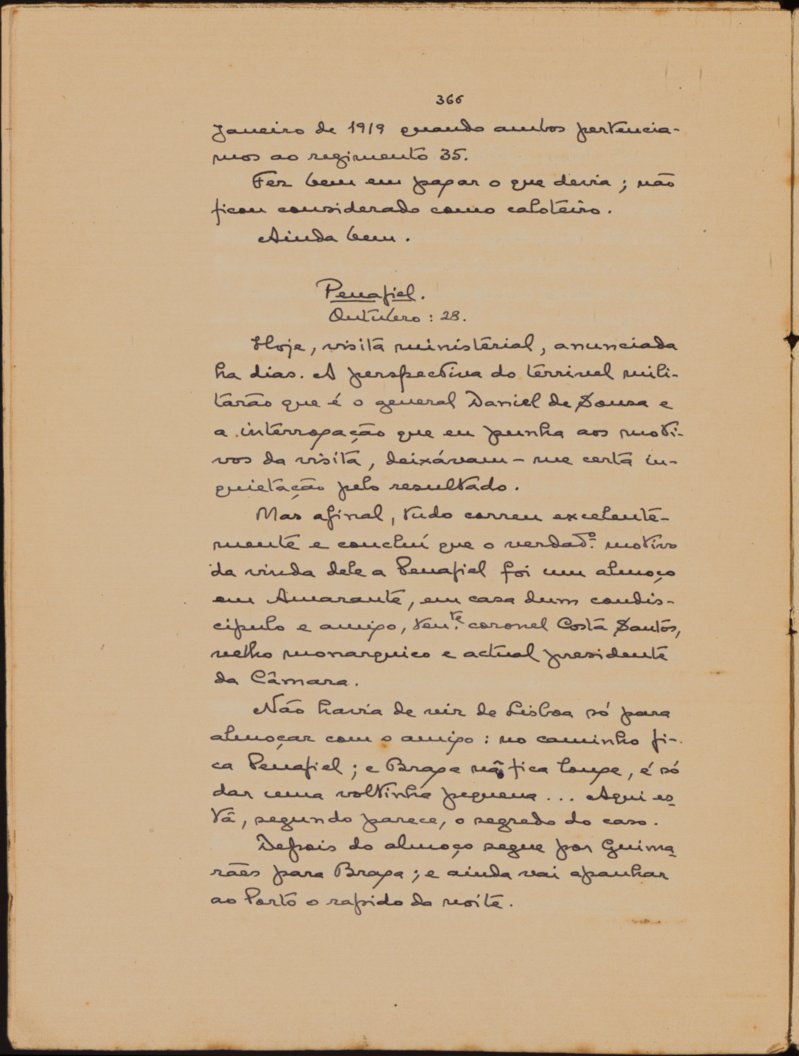 366
Janeiro de 1919 quando ambos pertencia-
mos ao regimento 35.
Fez bem em pagar o que devia; não
ficou considerado como caloteiro.
Ainda bem.
Penafiel.
Outubro: 28.
Hoje, visita ministerial, anunciada
ha dias. A perspectiva do terrivel mili-
tarão que é o general Daniel de Sousa e
a interrogação que eu punha aos moti-
vos da visita, deixávam-me certa in-
quietação pelo resultado.
Mas afinal, tudo correu excelente-
mente e concluí que o verdad.º motivo
da vinda dele a Penafiel foi um almoço
em Amarante, em casa dum condis-
cipulo e amigo, ten.te coronel Costa Santos,
velho monarquico e actual presidente
da Câmara.
Não havia de vir de Lisboa só para
almoçar com o amigo: no caminho fi-
ca Penafiel; e Braga não fica longe, é só
dar uma voltinha pequena... Aqui es-
tá, segundo parece, o segredo do caso.
Depois do almoço segue por Guima-
rães para Braga; e ainda vai apanhar
ao Porto o rapido da noite.